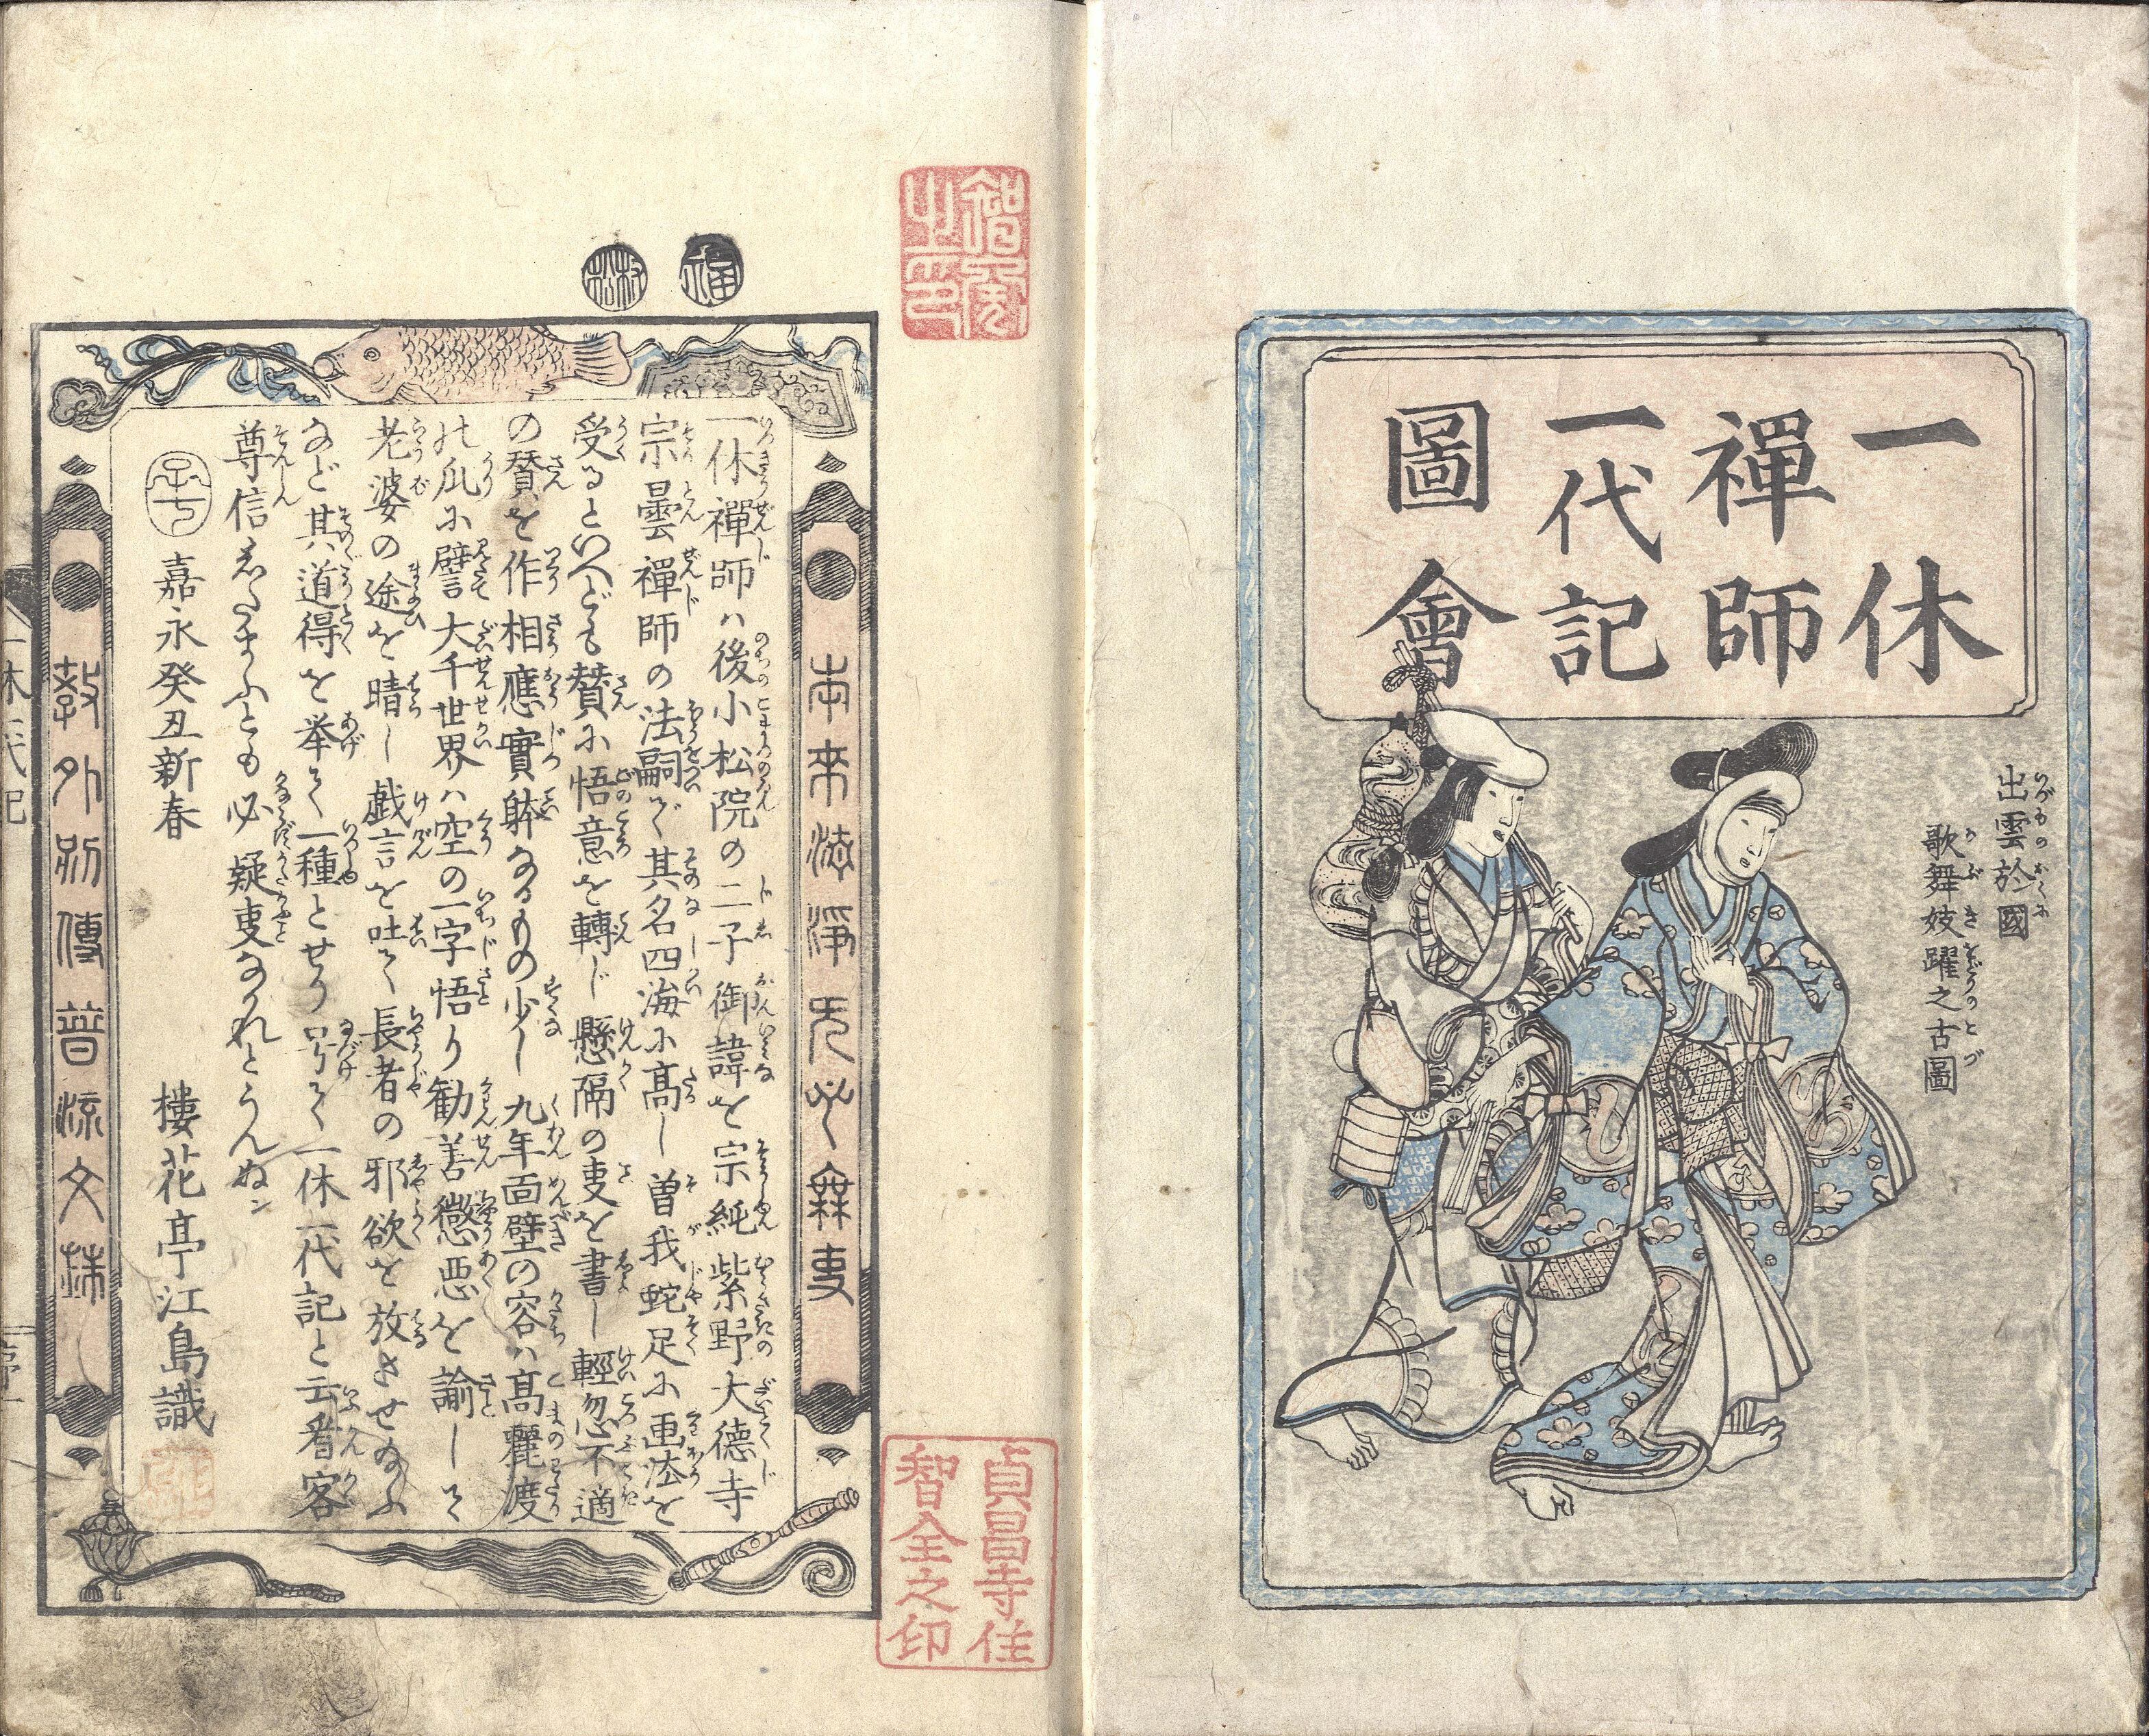 一休
禪師
一代記
圖會
出雲於國
歌舞妓躍之古圖
智
之印
貞昌寺住
智全之印
福
本来清浄元必無事
教外別傳普流文採
一休禪師ハ後小松院の二子御諱を宗純紫野大德寺
宗曇禪師の法嗣で其名四海に髙し曽我蛇足に画法を
受るといへども賛に悟意を轉じ懸隔の叓を書し輕忽不適
の賛を作相應實躰なるもの少し九年面壁の容ハ髙麗渡
の瓜に譬大千世界ハ空の一字悟り勧善懲惡を諭して
老婆の途を晴し戯言を吐て長者の邪欲を放させ給ふ
など其道得を举て一種とせり号て一休一代記と云看客
尊信したまふとも必疑叓なかれとうんぬン
嘉永癸丑新春
樓花亭江島識
一休一代記
序一